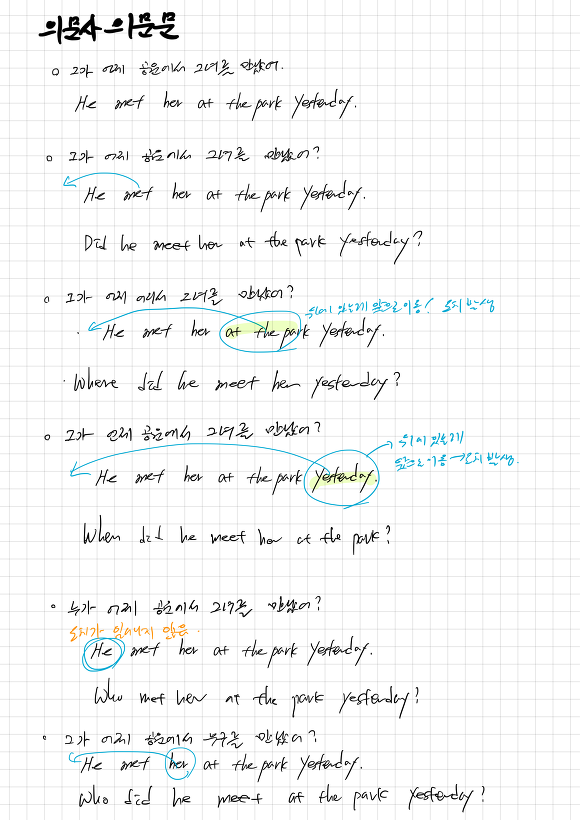 의문사 의문문
그가 어제 공원에서 그녀를 만났어.
He met her at the park yesterday.
그가 어제 공원에서 그녀를 만났어?
He met her at the park yesterday.
Did he meet her at the park yesterday?
그가 어제 어디서 그녀를 만났어?
뒤에 있는게 앞으로 이동! 도치 발생
He met her at the park yesterday.
Where did he meet her yesterday?
그가 언제 공원에서 그녀를 만났어?
뒤에 있는게
앞으로 이동 → 도치 발생.
He met her at the park yesterday.
When did he meet her at the park?
누가 어제 공원에서 그녀를 만났어?
도치가 일어나지 않음.
He met her at the park yesterday.
Who met her at the park yesterday?
그가 어제 공원에서 누구를 만났어?
He met her at the park yesterday.
Who did he meet at the park yesterday?